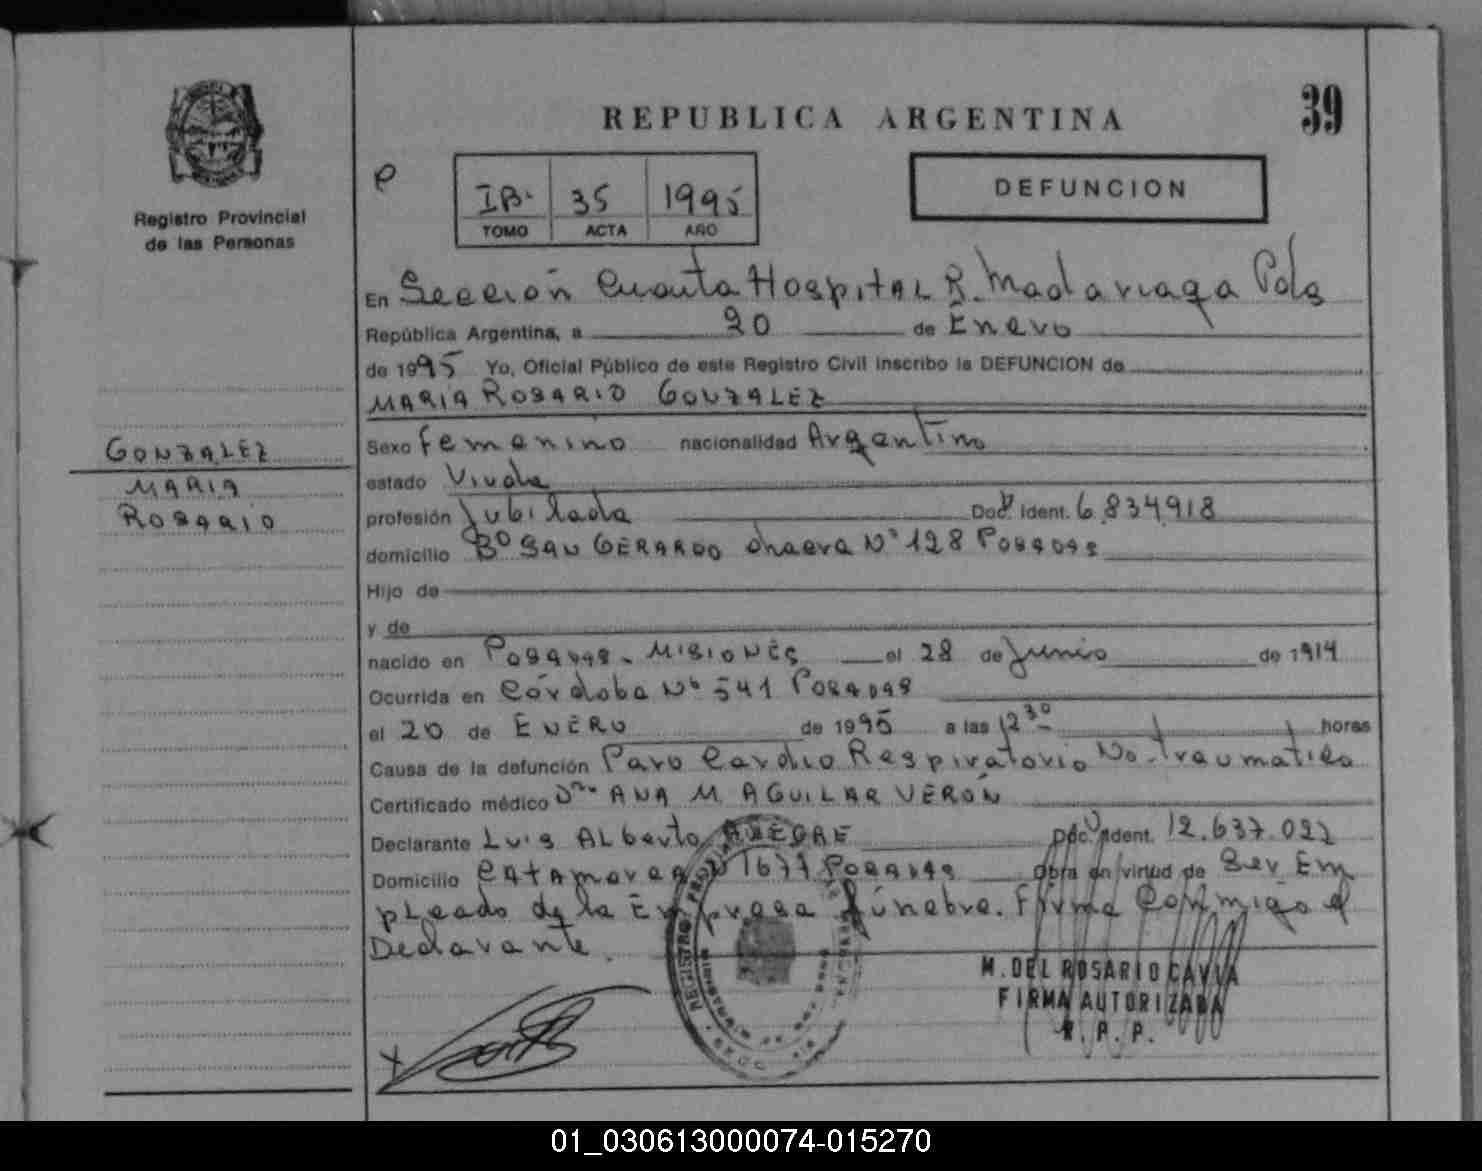 39
REPUBLICA ARGENTINA
Registro Provincial
de las Personas
IB. 35 1995
TOMO ACTA AÑO
DEFUNCION
En Sección Cuarta Hospital R. Madariaga Pdas
República Argentina, a 20 de Enero
de 1995 Yo, Oficial Público de este Registro Civil inscribo la DEFUNCION de
MARIA ROSARIO GONZALEZ
GONZALEZ
MARIA
ROSARIO
Sexo femenino nacionalidad Argentino
estado Viuda
profesión Jubilada Doc. Ident. 6.834.918
domicilio Bº SAN GERARDO chacra Nº 128 POSADAS
Hijo de
y de
nacido en POSADAS - MISIONES el 28 de Junio de 1914
Ocurrida en Córdoba Nº 541 POSADAS
el 20 de ENERO de 1995 a las 12 30 horas
Causa de la defunción Paro Cardio Respiratorio No-traumatico
Certificado médico Dra ANA M. AGUILAR VERÓN
Declarante Luis Alberto Doc. Ident. 12.637.022
Domicilio Catamarca Nº 1677 POSADAS Obra en virtud de Ser Em
pleado de la Empresa fúnebre. Firma Conmigo el
Declarante.
REGISTRO
M. DEL ROSARIO CAVIA
FIRMA AUTORIZADA
R. P. P.
01_030613000074-015270